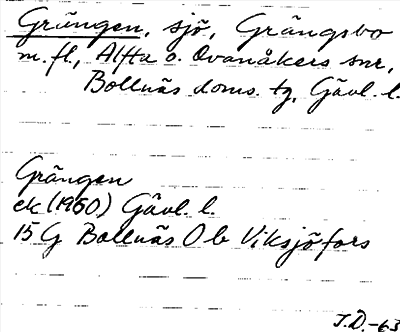 Grängen, sjö, Grängsbo
m.fl., Alfta o. Ovanåkers snr,
Bollnäs doms. tg, Gävl. l.
Grängen
ek (1960) Gävl. l.
15 G Bollnäs 0 b Viksjöfors
J.D.-63